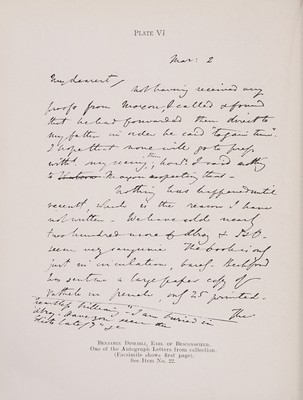 PLATE VI
Mar: 2
My dearest,
not having received any
proofs from Moxon, I called & found
that he had forwarded them direct to
my father in order he said "to gain time".
I hope that none will go to press
witht. my seeing them; how I said nothing
to Moxon respecting that –
Nothing has happened until
recently, which is the reason I have
not written – We have sold nearly
two hundred more of &
seem very sanguine. The book is only
just in circulation,
has sent me a large paper copy of
Vathek in french, only 25 printed.
The
"I am buried in
Have you seen the
BENJAMIN DISRAELI, EARL OF BEACONSFIELD.
One of the Autograph Letters from collection.
(Facsimile shows first page).
See Item No. 22.